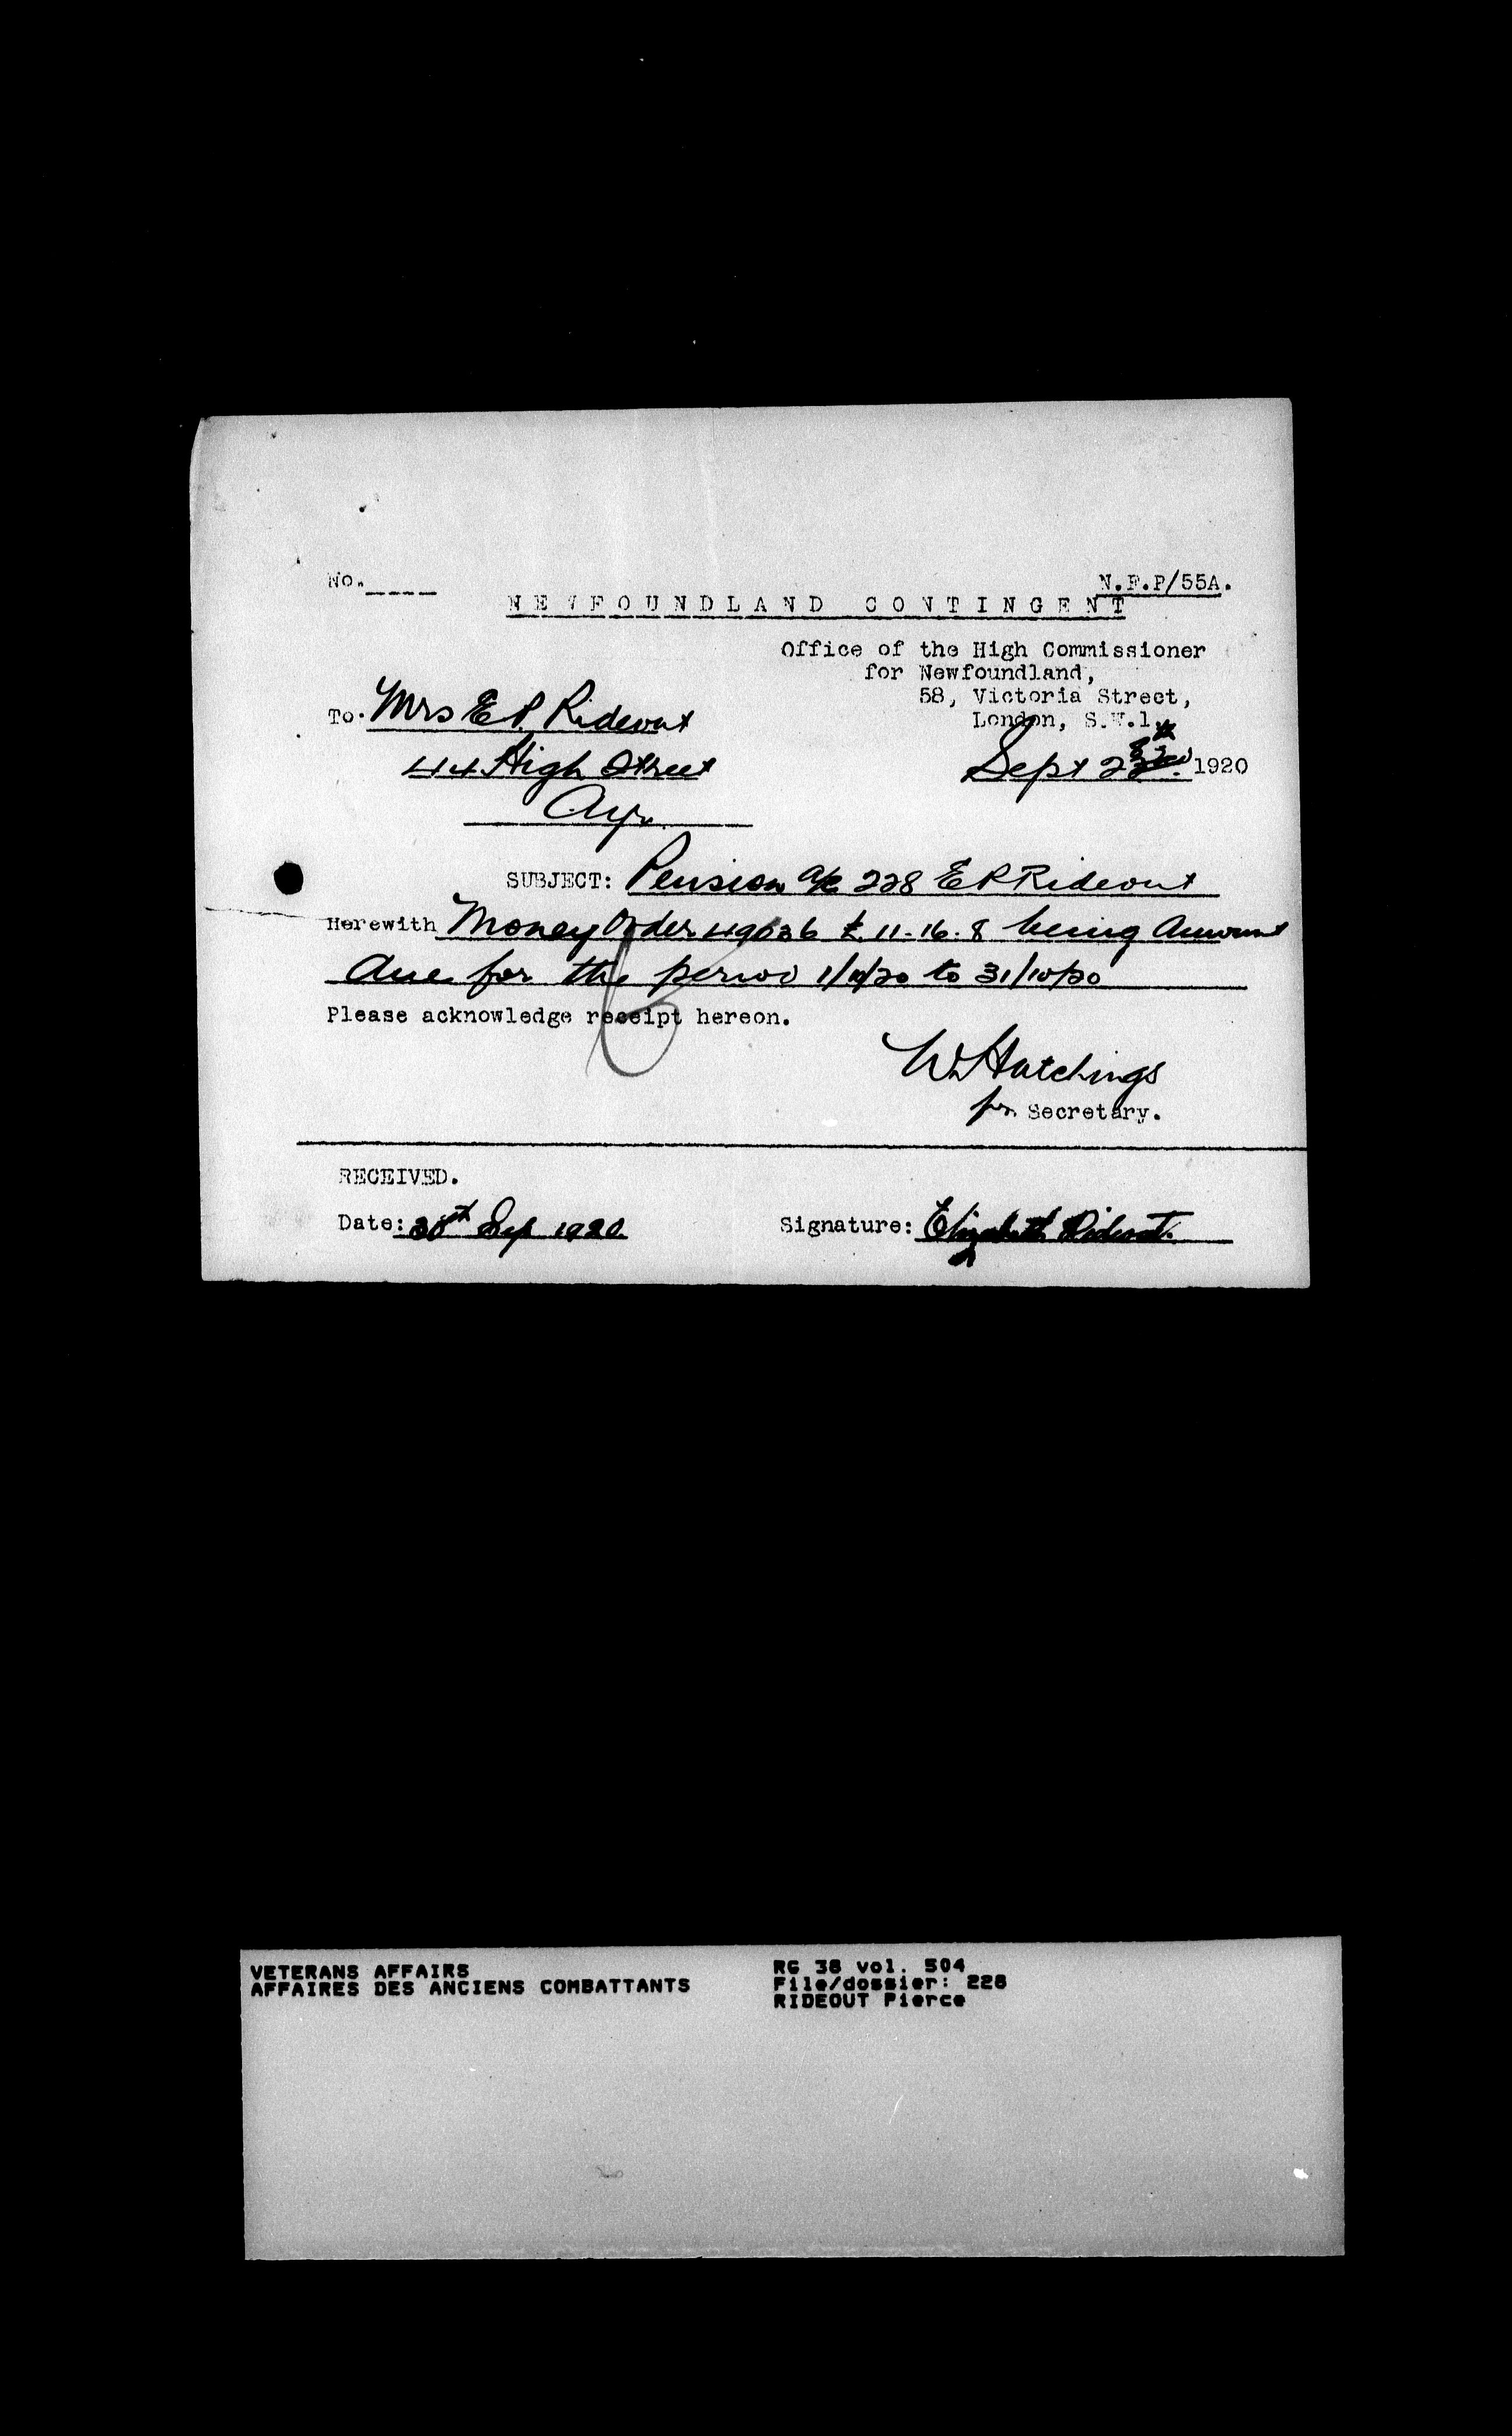 No.____ N.F.P/55A.
NEWFOUNDLAND CONTINGENT
Office of the High Commissioner
for Newfoundland,
58, Victoria Street,
London, S.W.1.
To. Mrs E P. Rideout
44 High Street
Ayr
Sept 28th 1920
SUBJECT: Pension a/c 228 E P Rideout
Herewith Money Order 49036 £.11-16-8 being Amount
due for the period 1/10/20 to 31/10/20
Please acknowledge receipt hereon.
W Hutchings
for Secretary.
RECEIVED.
Date: 30th Sep 1920. Signature: Elizabeth Rideout.
VETERANS AFFAIRS
AFFAIRES DES ANCIENS COMBATTANTS
RG 38 vol. 504
File/dossier: 228
RIDEOUT Pierce